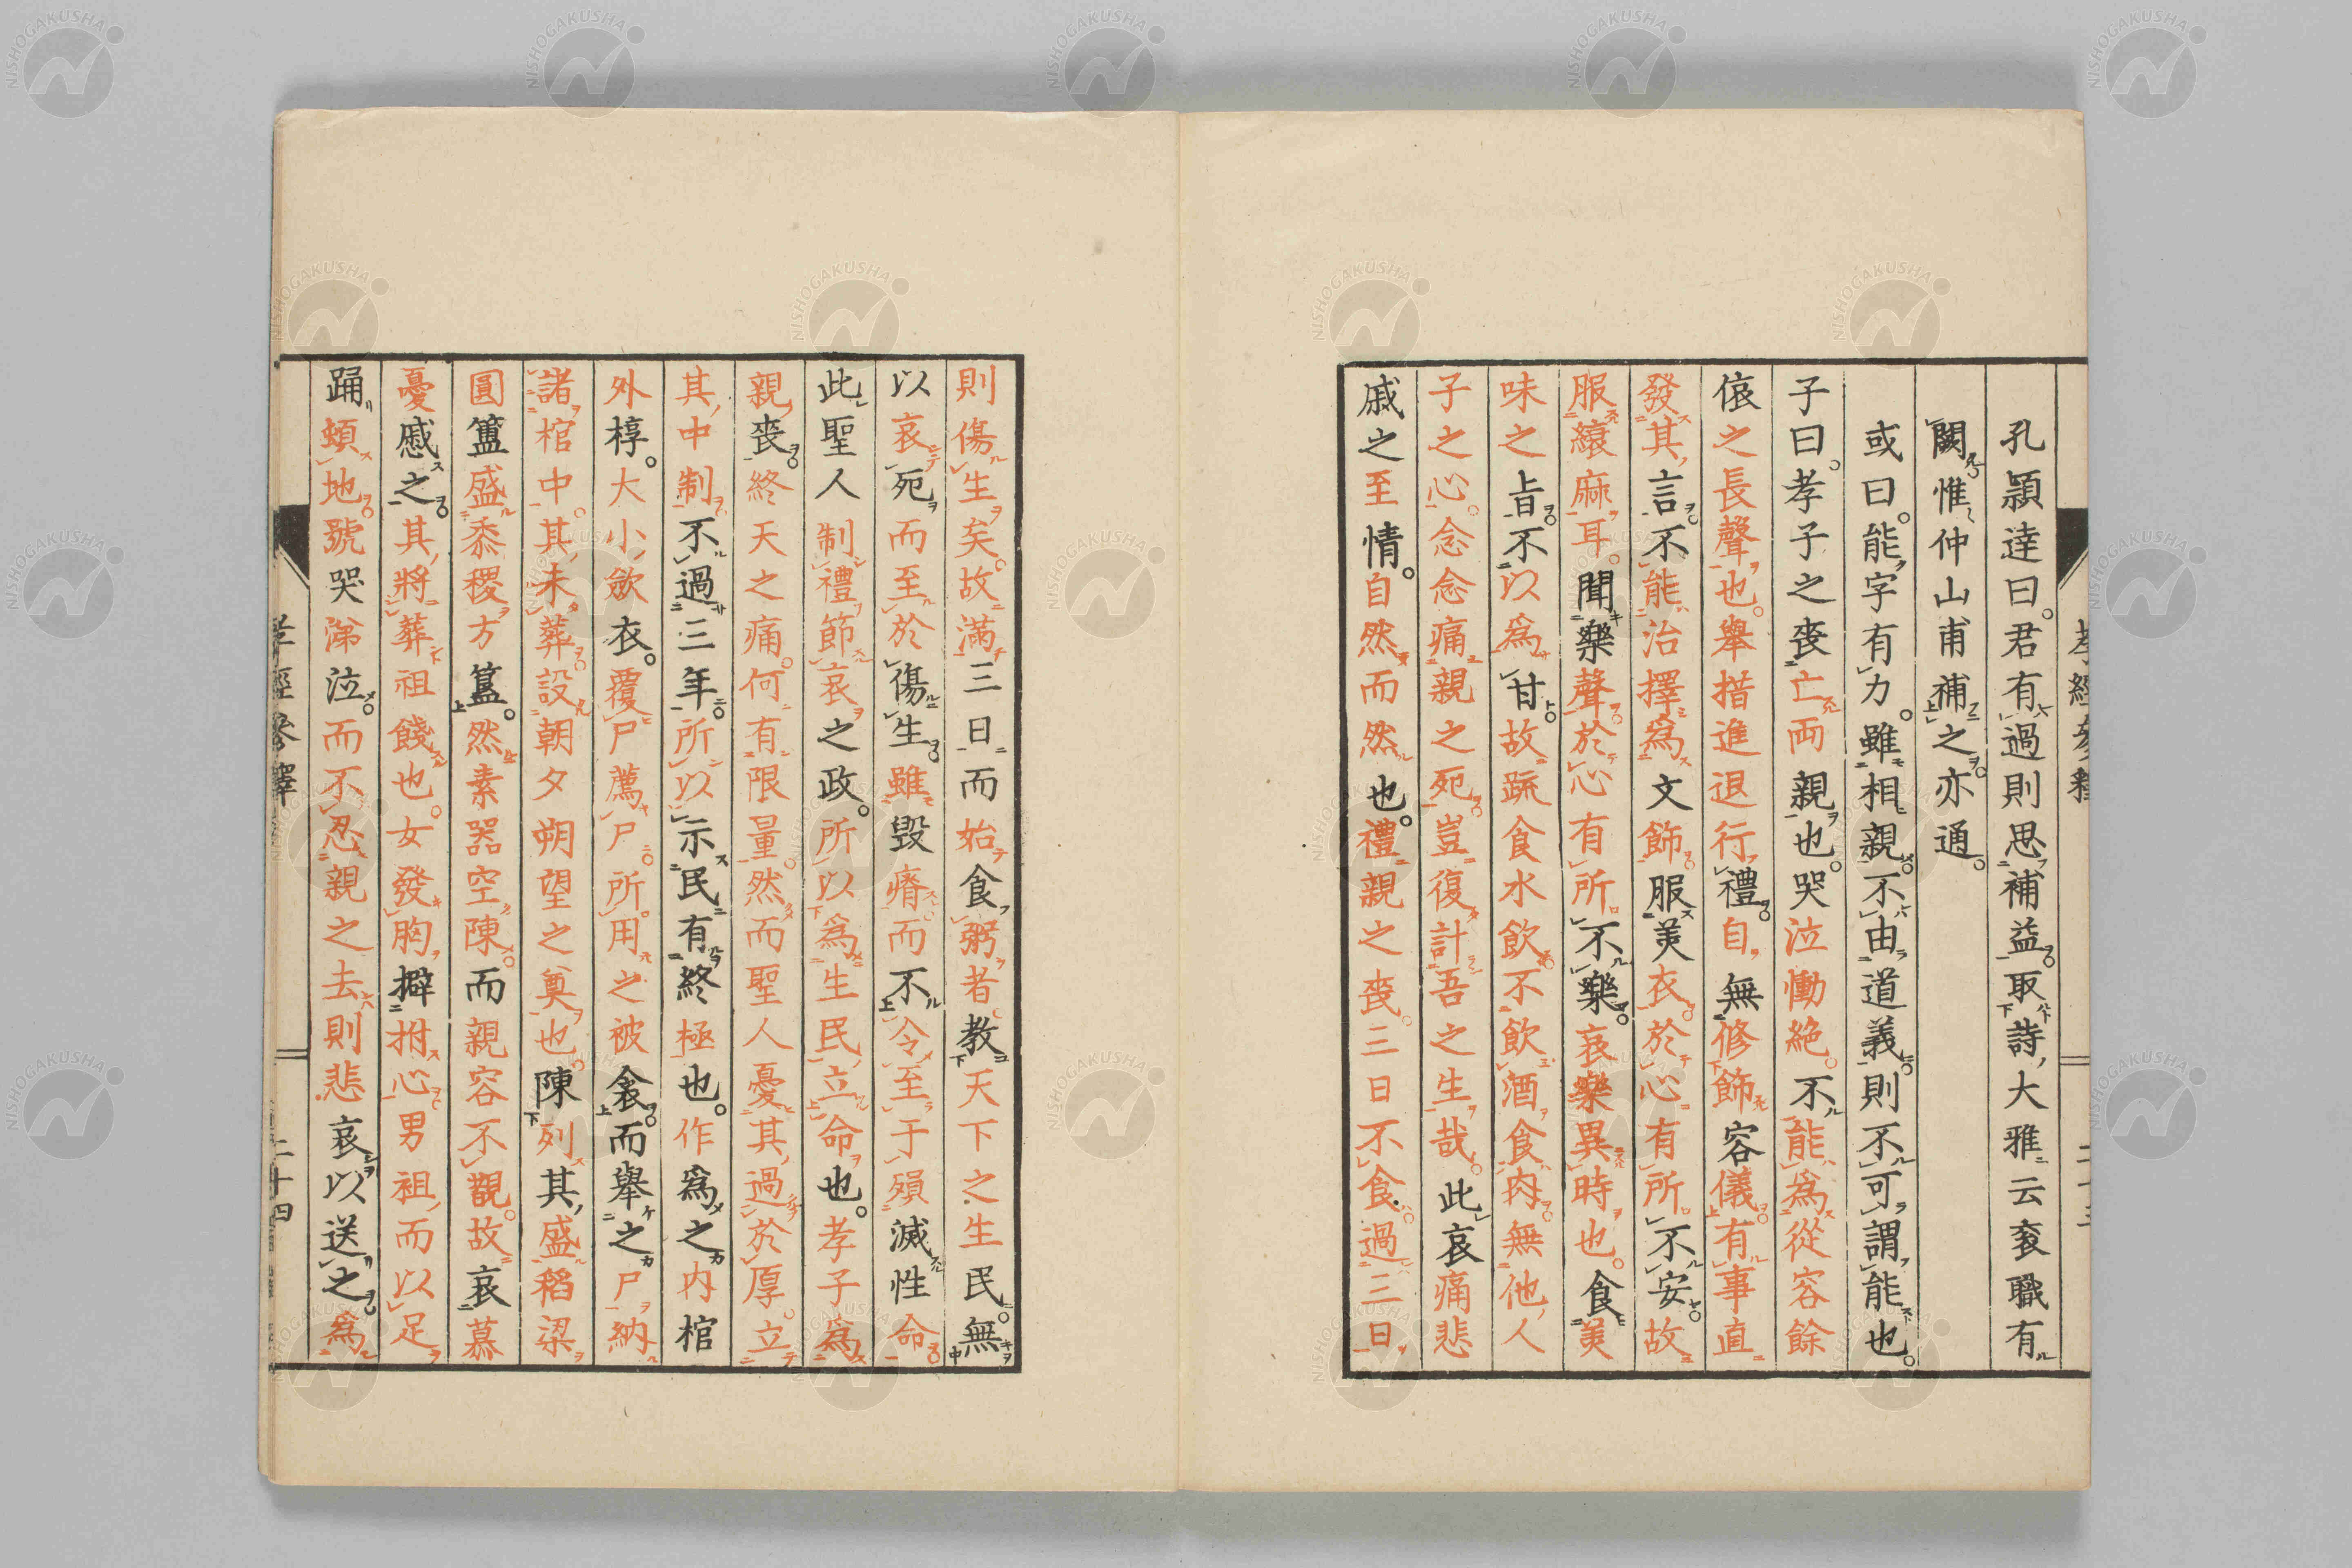 孔穎達曰。君有過則思補益。取詩大雅云袞職有
闕惟仲山甫補之亦通。
或曰。能字有力。雖相親不由道義則不可謂能也。
子曰。孝子之喪亡両親也。哭泣慟絶。不能為從容餘
偯之長聲也。擧措進退行禮。自無修飾容儀有事直
發其言不能治擇為文飾。服美衣於心有所不安故
服縗麻耳。聞樂聲於心有所不樂。哀樂異時也。食美
味之旨不以為甘。故疏食水飲。不飲酒食肉。無他人
子之心。念念痛親之死。豈復計吾之生哉。此哀痛悲
戚之至情。自然而然也。禮親之喪。三日不食。過三日
則傷生矣。故満三日而始食粥者。教天下之生民。無
以哀死而至於傷生。雖毀瘠而不令至于殞滅性命
此聖人制禮節哀之政。所以為生民立命也。孝子為
親喪。終天之痛。何有限量。然而聖人憂其過於厚。立
其中制不過三年。所以示民有終極也。作為之内棺
外椁。大小歛衣。覆尸薦尸。所用之被衾。而擧之尸納
諸棺中。其未葬。設朝夕朔望之奠也。陳列其盛稻梁
圓簠盛黍稷方簋。然素器空陳。而親容不觀。故哀慕
憂慼之。其將葬祖餞也。女發胸擗拊心男祖而以足
踊蝢地。號哭涕泣。而不忍親之去則悲哀以送之。為
孝經參釋
二十四